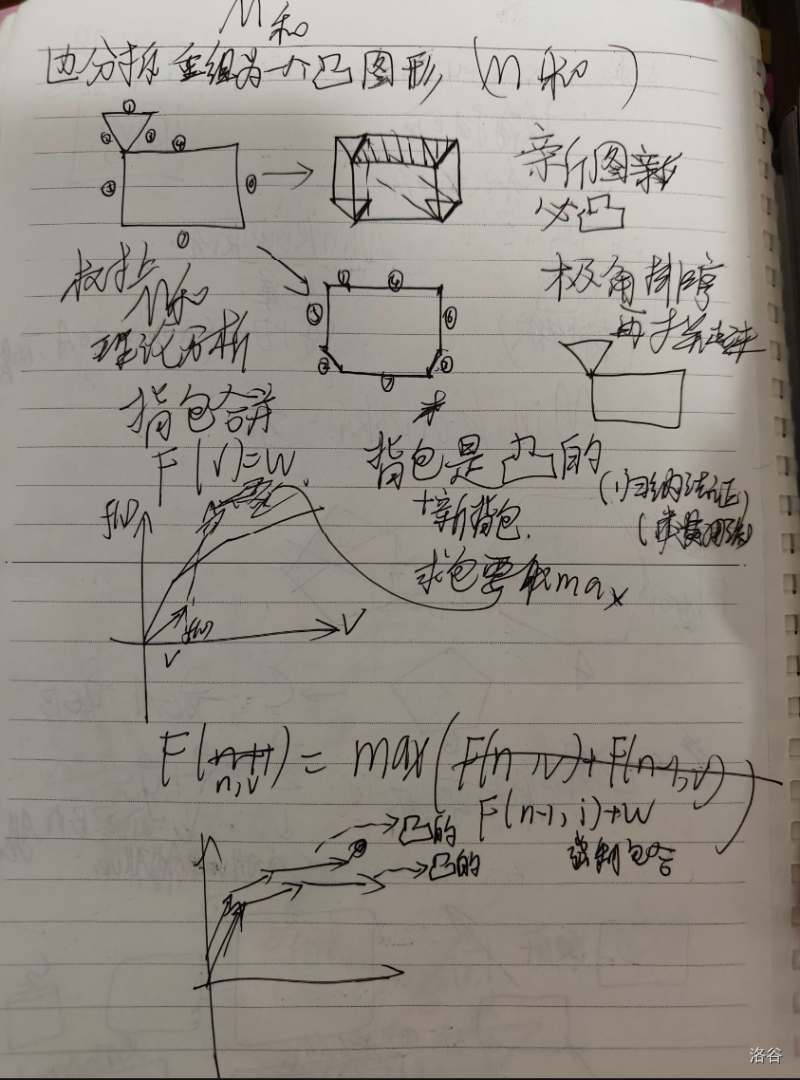 M和
边分拆重组为一个凸图形 (M和)
① ② ③ ④ ⑤ ⑥ ⑦
新图
必凸
极角排序
再拼起来
M和
理论分析
背包合并
F(v)=W
背包是凸的
(归纳法证)
+新背包
求包要取max
f(v)
V
f(v)
v
F(n,v) = max(F(n,v)+F(n-1,v)
F(n-1,i)+W)
凸的
凸的
强制包含
洛谷